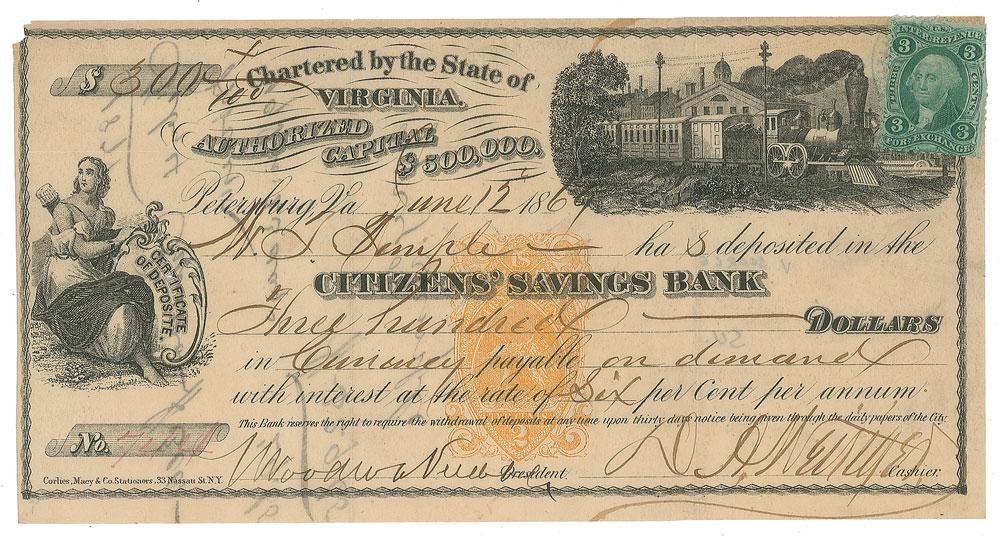 $ 300 00/100
Chartered by the State of
VIRGINIA.
AUTHORIZED
CAPITAL
$500,000.
U.S. INTER. REVENUE
3 3
THREE CENTS
3 3
FOR. EXCHANGE
Petersburg, Va June 12 1869
W. J. Temple has deposited in the
CITIZENS' SAVINGS BANK
Three hundred DOLLARS
CERTIFICATE
OF DEPOSITE.
in Currency payable on demand
with interest at the rate of Six per Cent per annum.
This Bank reserves the right to require the withdrawal of deposits at any time upon thirty days notice being given through the daily papers of the City.
No.
President. Cashier.
Corlies, Macy & Co. Stationers, 33 Nassau St. N.Y.